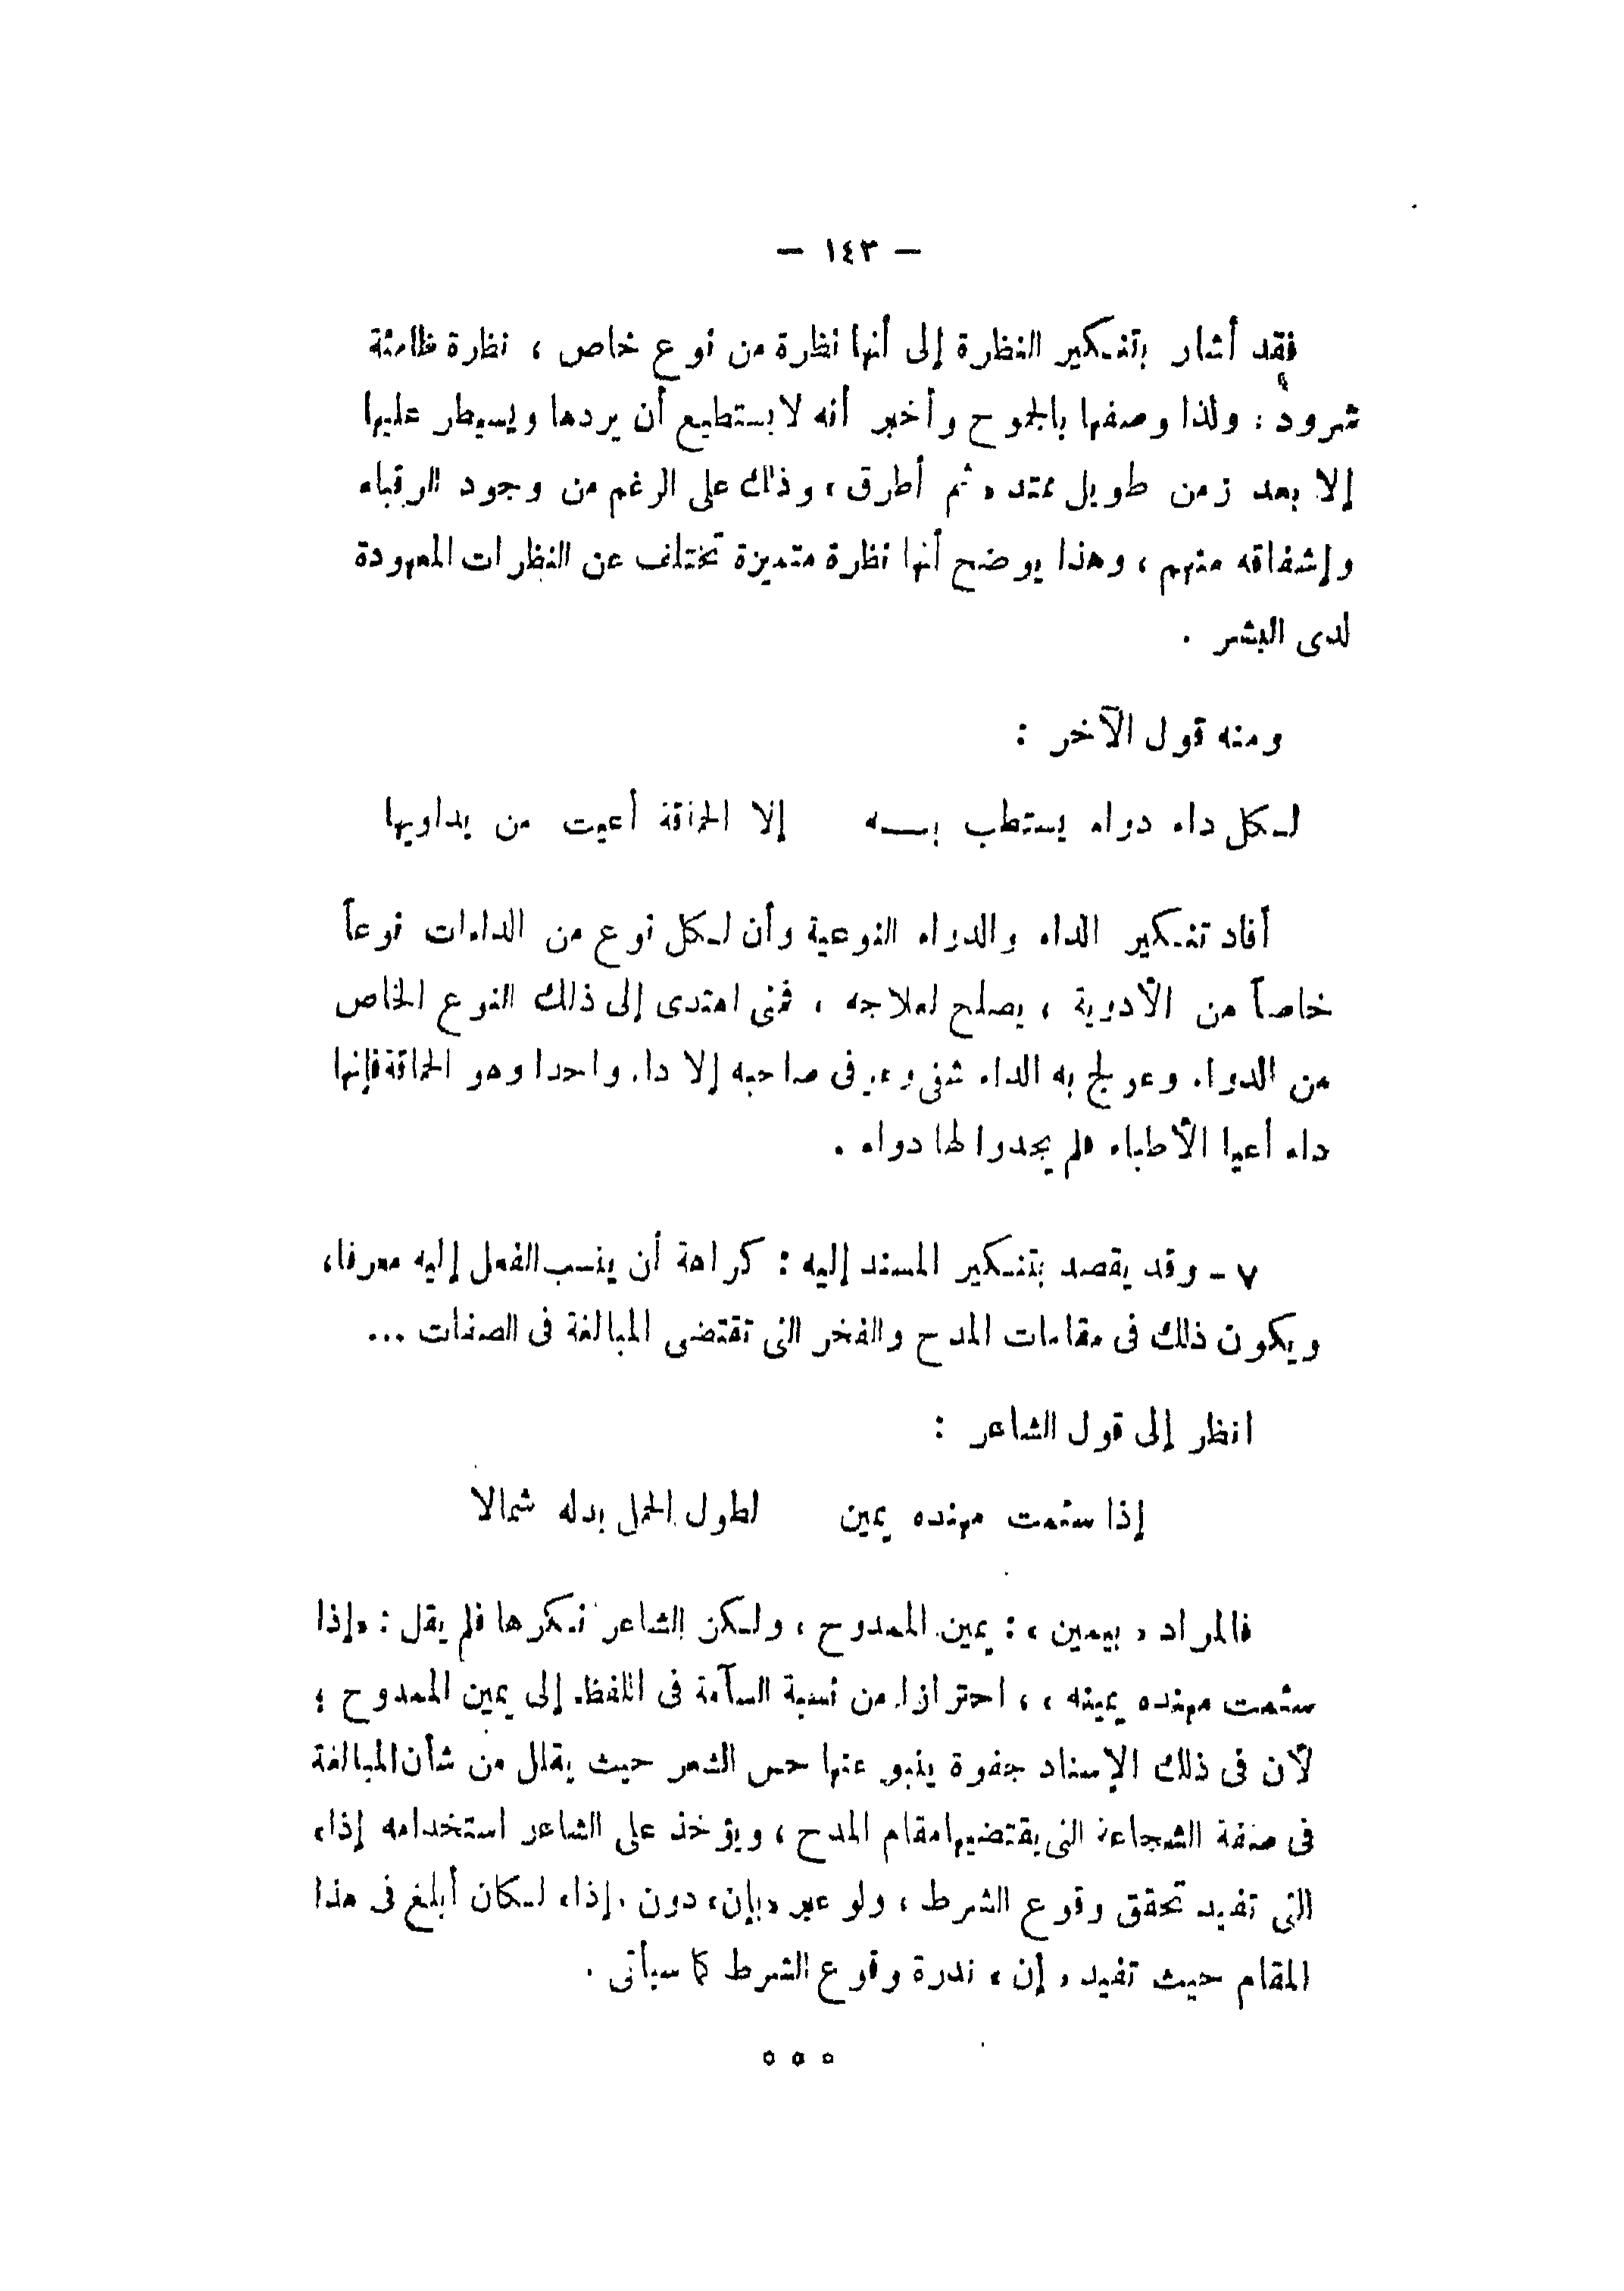 — ١٤٣ —
فقد أشار بتنكير النظرة إلى أنها نظرة من نوع خاص ، نظرة ظامئة
شرود ؛ ولذا وصفها بالجموح وأخبر أنه لا يستطيع أن يردها ويسيطر عليها
إلا بعد زمن طويل ممتد « ثم أطرق » وذلك على الرغم من وجود الرقباء
وإشفاقه منهم ، وهذا يوضح أنها نظرة متميزة تختلف عن النظرات المعهودة
لدى البشر .
ومنه قول الآخر :
لكل داء دواء يستطب به إلا الحماقة أعيت من يداويها
أفاد تنكير الداء والدواء النوعية وأن لكل نوع من الداءات نوعاً
خاصاً من الأدوية ، يصلح لعلاجه ، فمتى اهتدى إلى ذلك النوع الخاص
من الدواء وعولج به الداء شفى وعوفى صاحبه إلا داء واحدا وهو الحماقة فإنها
داء أعيا الأطباء فلم يجدوا لها دواء .
٧ - وقد يقصد بتنكير المسند إليه : كراهة أن ينسب الفعل إليه معرفا ،
ويكون ذلك فى مقامات المدح والفخر التى تقتضى المبالغة فى الصفات ...
انظر إلى قول الشاعر :
إذا سئمت مهنده يمين لطول الحمل بدله شمالا
فالمراد « بيمين » : يمين الممدوح ، ولكن الشاعر نكرها فلم يقل : « إذا
سئمت مهنده يمينه » ، احترازا من نسبة السآمة فى اللفظ إلى يمين الممدوح ؛
لأن فى ذلك الإسناد جفوة ينبو عنها حس الشعر حيث يقلل من شأن المبالغة
فى صفة الشجاعة التى يقتضيها مقام المدح ، ويؤخذ على الشاعر استخدامه إذا »
التى تفيد تحقق وقوع الشرط ، ولو عبر « بإن » دون « إذا » لكان أبلغ فى هذا
المقام حيث تفيد « إن » ندرة وقوع الشرط كما سيأتى .
° ° °